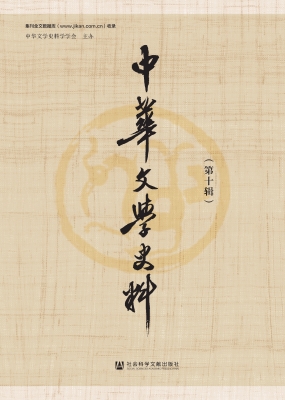 集刊全文数据库（www.jikan.com.cn）收录
中华文学史料学学会 主办
中華文學史料
（第十辑）
社会科学文献出版社
SOCIAL SCIENCES ACADEMIC PRESS (CHINA)